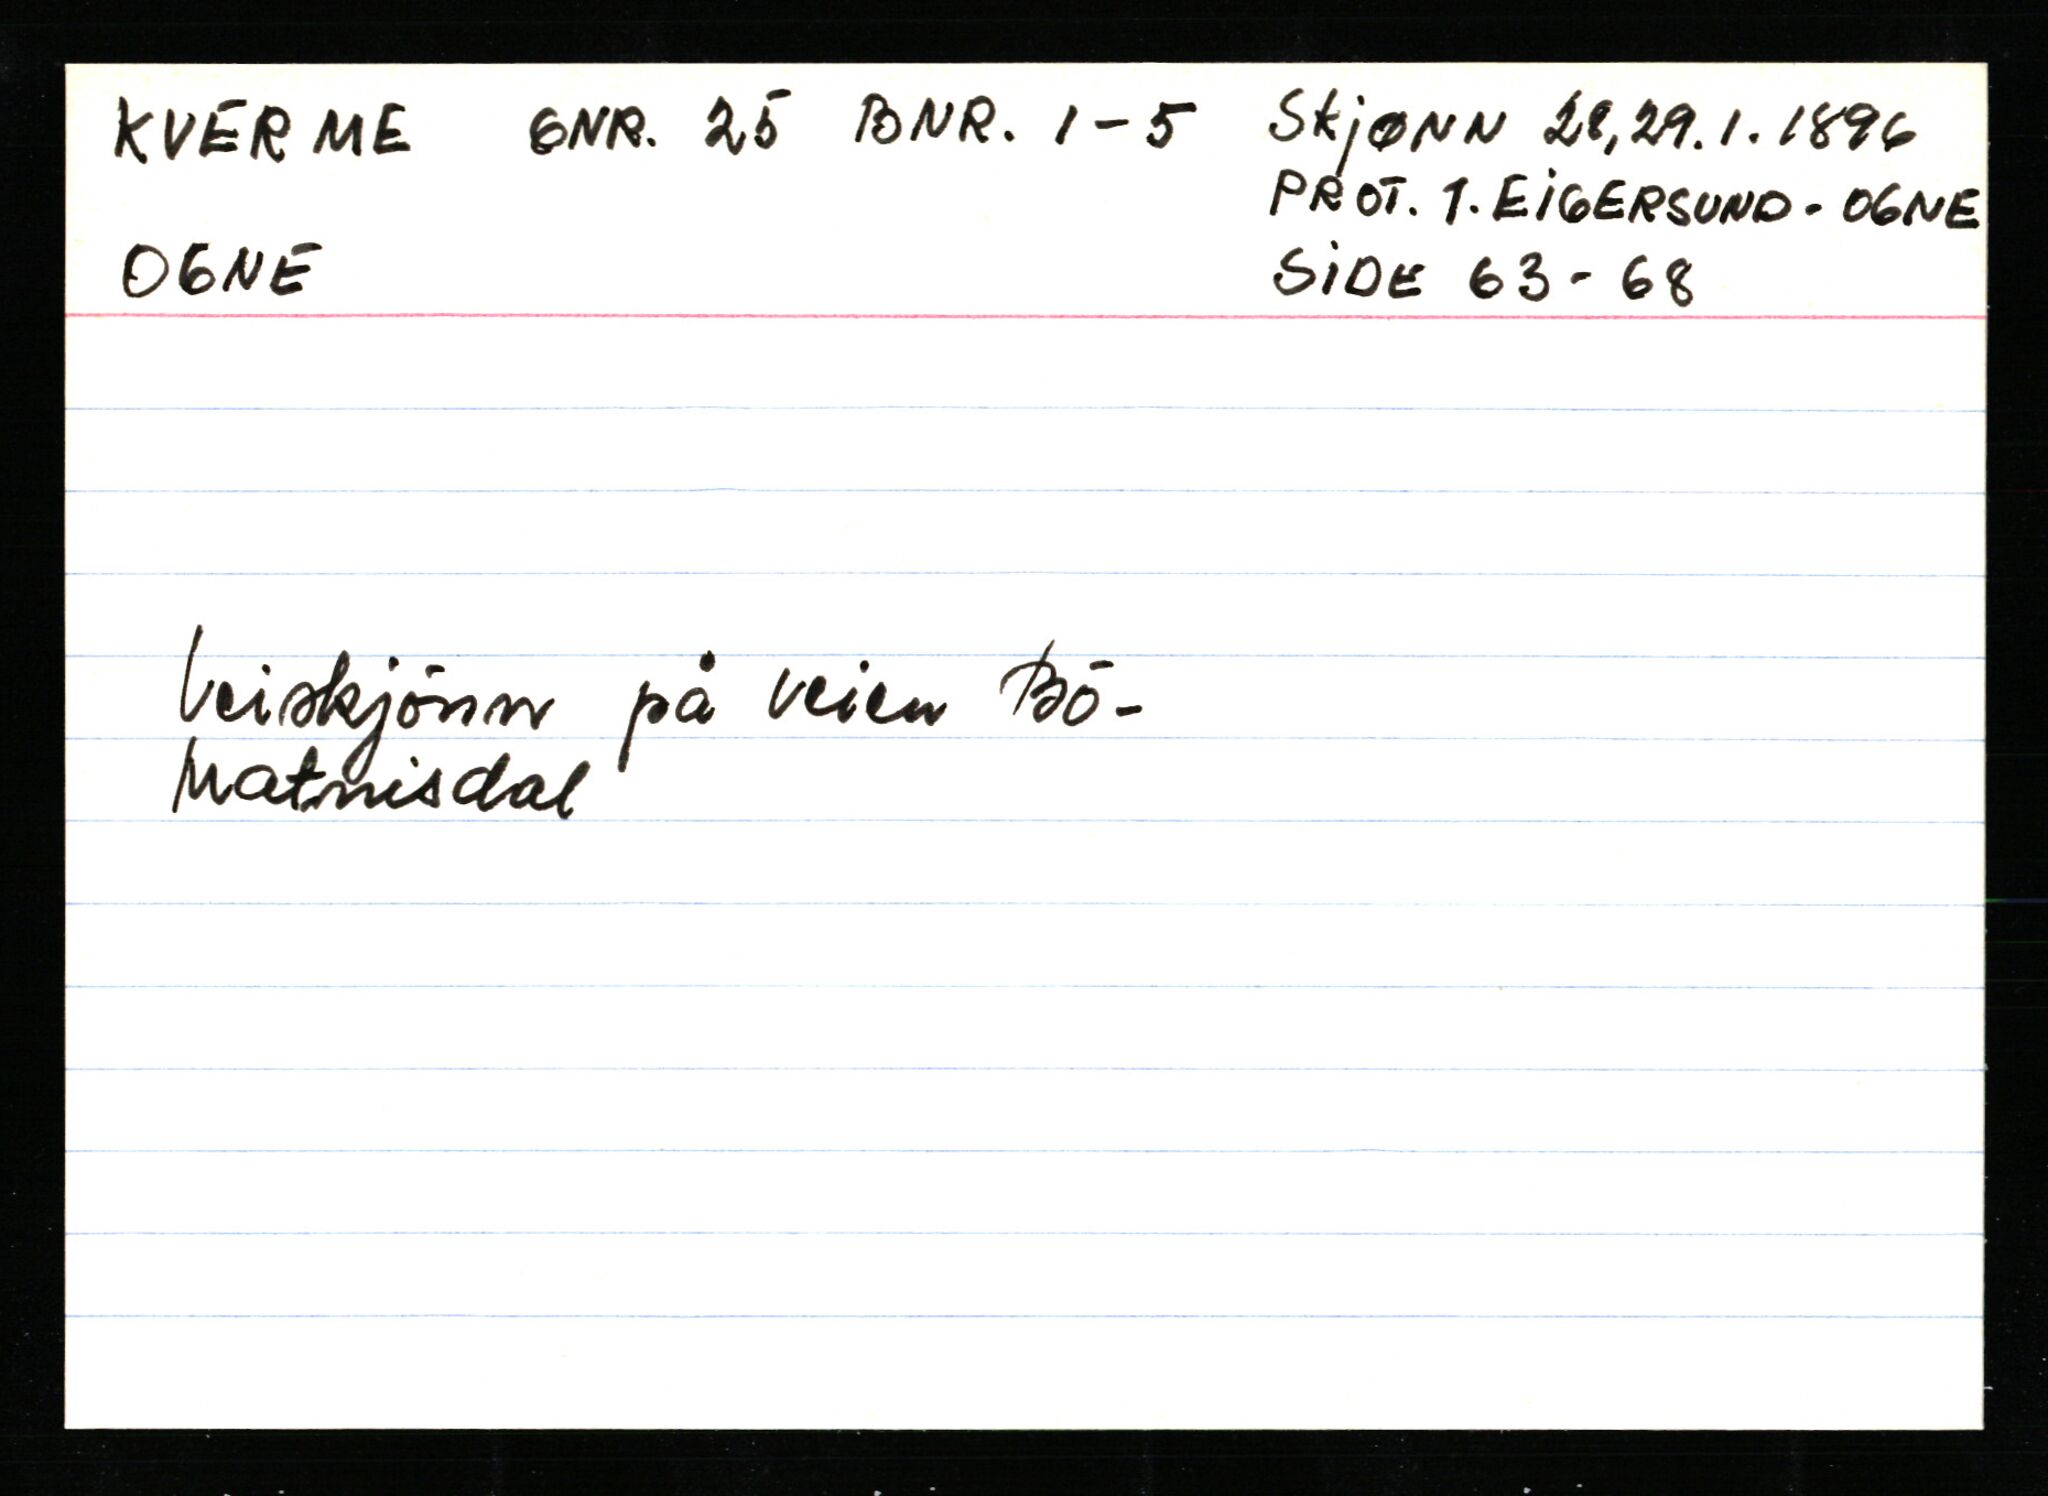 KVERME GNR. 25 BNR. 1-5 Skjønn 28,29.1.1896
PROT. 1. EIGERSUND - OGNE
OGNE SIDE 63 - 68
Veiskjönn på veien Bö-
Matnisdal